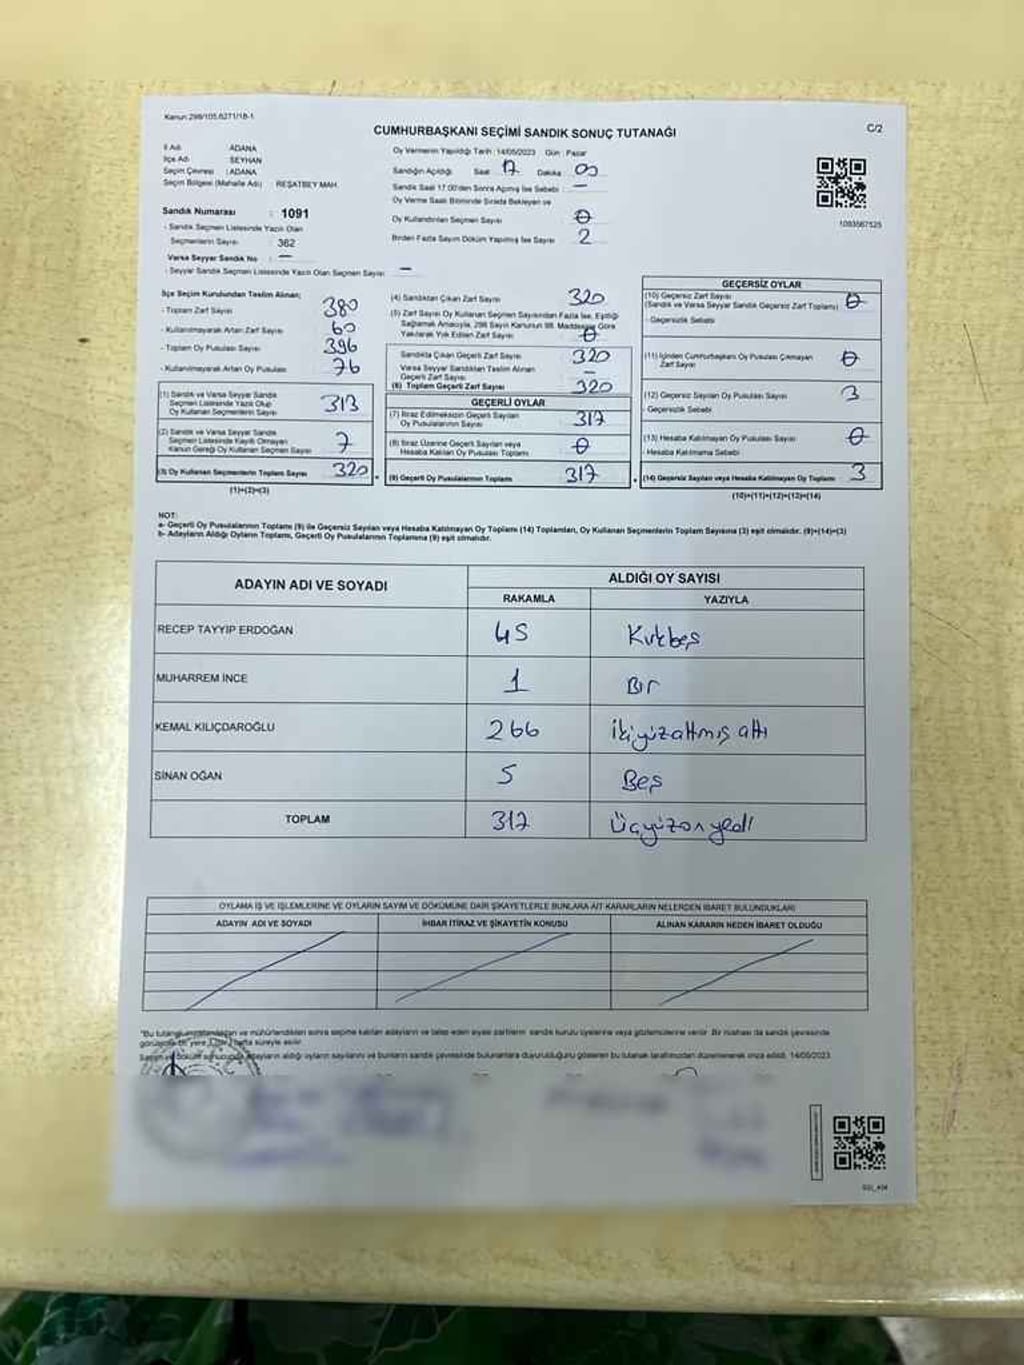 Kanun:298/105,6271/18-1
CUMHURBAŞKANI SEÇİMİ SANDIK SONUÇ TUTANAĞI
C/2
İl Adı : ADANA
İlçe Adı : SEYHAN
Seçim Çevresi : ADANA
Seçim Bölgesi (Mahalle Adı) : REŞATBEY MAH.
Sandık Numarası : 1091
- Sandık Seçmen Listesinde Yazılı Olan
Seçmenlerin Sayısı : 362
Varsa Seyyar Sandık No : —
- Seyyar Sandık Seçmen Listesinde Yazılı Olan Seçmen Sayısı : —
Oy Vermenin Yapıldığı Tarih : 14/05/2023 Gün : Pazar
Sandığın Açıldığı Saat 17 Dakika 00
Sandık Saat 17:00'den Sonra Açılmış İse Sebebi : —
Oy Verme Saati Bitiminde Sırada Bekleyen ve
Oy Kullandırılan Seçmen Sayısı 0
Birden Fazla Sayım Döküm Yapılmış İse Sayısı 2
1093567525
İlçe Seçim Kurulundan Teslim Alınan;
- Toplam Zarf Sayısı 380
- Kullanılmayarak Artan Zarf Sayısı 60
- Toplam Oy Pusulası Sayısı 396
- Kullanılmayarak Artan Oy Pusulası 76
(1) Sandık ve Varsa Seyyar Sandık
Seçmen Listesinde Yazılı Olup
Oy Kullanan Seçmenlerin Sayısı 313
(2) Sandık ve Varsa Seyyar Sandık
Seçmen Listesinde Kayıtlı Olmayan
Kanun Gereği Oy Kullanan Seçmen Sayısı 7
(3) Oy Kullanan Seçmenlerin Toplam Sayısı 320
(1)+(2)=(3)
(4) Sandıktan Çıkan Zarf Sayısı 320
(5) Zarf Sayısı Oy Kullanan Seçmen Sayısından Fazla İse, Eşitliği
Sağlamak Amacıyla, 298 Sayılı Kanunun 98. Maddesine Göre
Yakılarak Yok Edilen Zarf Sayısı 0
Sandıkta Çıkan Geçerli Zarf Sayısı 320
Varsa Seyyar Sandıktan Teslim Alınan
Geçerli Zarf Sayısı —
(6) Toplam Geçerli Zarf Sayısı 320
GEÇERLİ OYLAR
(7) İtiraz Edilmeksizin Geçerli Sayılan
Oy Pusulalarının Sayısı 317
(8) İtiraz Üzerine Geçerli Sayılan veya
Hesaba Katılan Oy Pusulası Toplamı 0
(9) Geçerli Oy Pusulalarının Toplamı 317
GEÇERSİZ OYLAR
(10) Geçersiz Zarf Sayısı
(Sandık ve Varsa Seyyar Sandık Geçersiz Zarf Toplamı) 0
- Geçersizlik Sebebi
(11) İçinden Cumhurbaşkanı Oy Pusulası Çıkmayan
Zarf Sayısı 0
(12) Geçersiz Sayılan Oy Pusulası Sayısı 3
- Geçersizlik Sebebi
(13) Hesaba Katılmayan Oy Pusulası Sayısı 0
- Hesaba Katılmama Sebebi
(14) Geçersiz Sayılan veya Hesaba Katılmayan Oy Toplamı 3
(10)+(11)+(12)+(13)=(14)
NOT:
a- Geçerli Oy Pusulalarının Toplamı (9) ile Geçersiz Sayılan veya Hesaba Katılmayan Oy Toplamı (14) Toplamları, Oy Kullanan Seçmenlerin Toplam Sayısına (3) eşit olmalıdır. (9)+(14)=(3)
b- Adayların Aldığı Oyların Toplamı, Geçerli Oy Pusulalarının Toplamına (9) eşit olmalıdır.
ADAYIN ADI VE SOYADI ALDIĞI OY SAYISI
RAKAMLA YAZIYLA
RECEP TAYYİP ERDOĞAN 45 Kırkbeş
MUHARREM İNCE 1 Bir
KEMAL KILIÇDAROĞLU 266 ikiyüzaltmış altı
SİNAN OĞAN 5 Beş
TOPLAM 317 Üçyüzonyedi
OYLAMA İŞ VE İŞLEMLERİNE VE OYLARIN SAYIM VE DÖKÜMÜNE DAİR ŞİKAYETLERLE BUNLARA AİT KARARLARIN NELERDEN İBARET BULUNDUKLARI
ADAYIN ADI VE SOYADI İHBAR İTİRAZ VE ŞİKAYETİN KONUSU ALINAN KARARIN NEDEN İBARET OLDUĞU
ve mühürlendikten sonra seçime katılan adayların ve talep eden siyasi partilerin sandık kurulu üyelerine veya gözlemcilerine verilir. Bir nüshası da sandık çevresinde
bir yere hafta süreyle asılır.
adayların aldığı oyların sayılarını ve bunların sandık çevresinde bulunanlara duyurulduğunu gösteren bu tutanak tarafımızdan düzenlenerek imza edildi. 14/05/2023